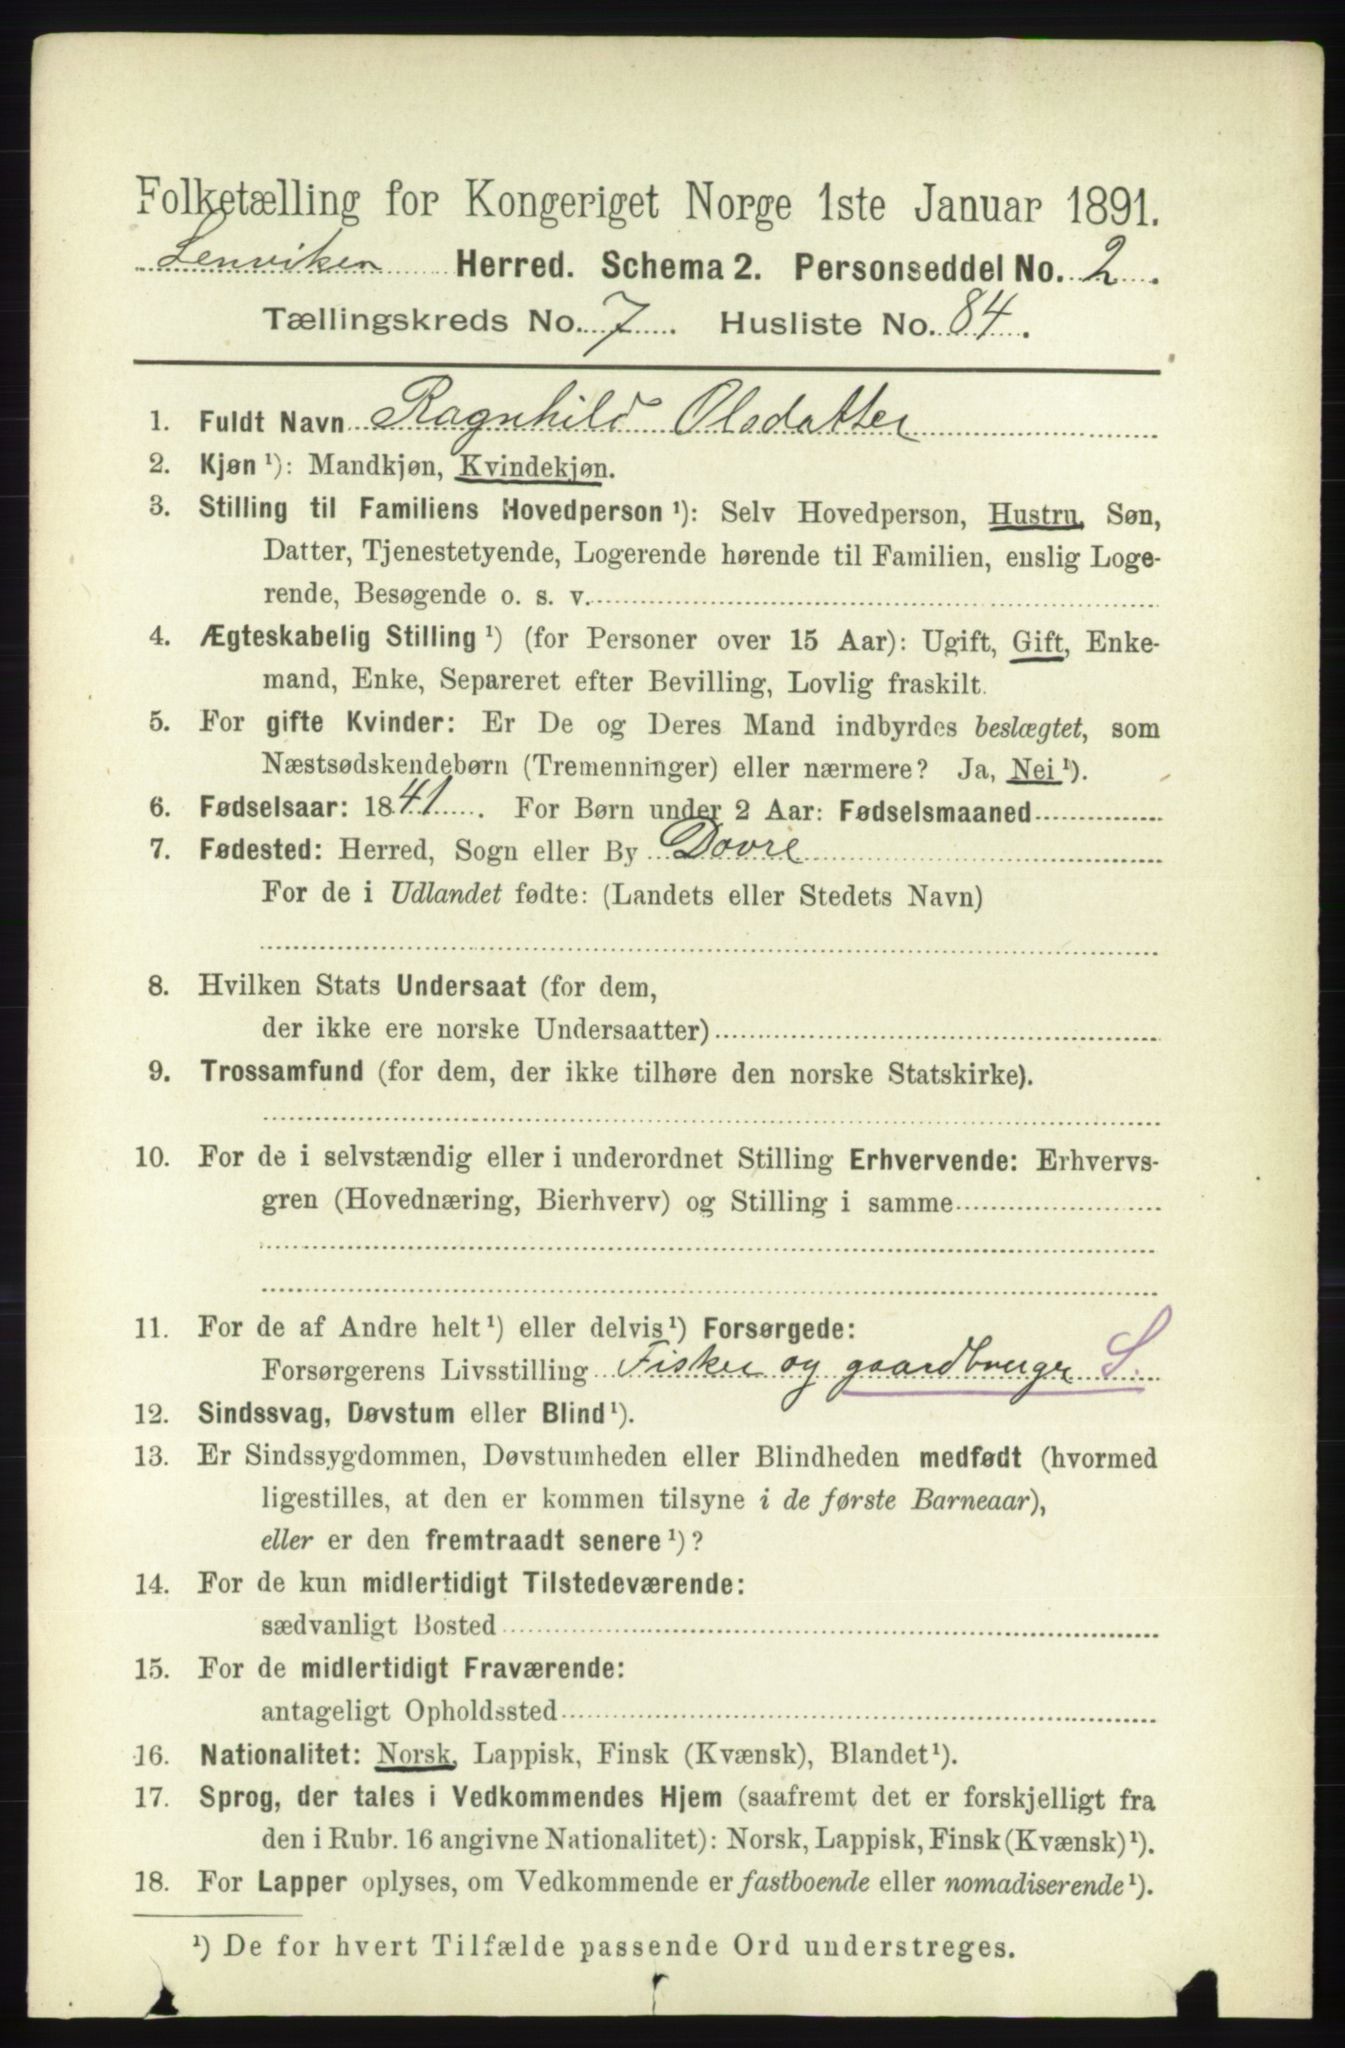 Folketælling for Kongeriget Norge 1ste Januar 1891.
Lenviken Herred. Schema 2. Personseddel No. 2.
Tællingskreds No. 7. Husliste No. 84.
1. Fuldt Navn Ragnhild Olsdatter
2. Kjøn ¹): Mandkjøn, Kvindekjøn.
3. Stilling til Familiens Hovedperson ¹): Selv Hovedperson, Hustru, Søn,
Datter, Tjenestetyende, Logerende hørende til Familien, enslig Loge-
rende, Besøgende o. s. v.
4. Ægteskabelig Stilling ¹) (for Personer over 15 Aar): Ugift, Gift, Enke-
mand, Enke, Separeret efter Bevilling, Lovlig fraskilt.
5. For gifte Kvinder: Er De og Deres Mand indbyrdes beslægtet, som
Næstsødskendebørn (Tremenninger) eller nærmere? Ja, Nei ¹).
6. Fødselsaar: 1841. For Børn under 2 Aar: Fødselsmaaned
7. Fødested: Herred, Sogn eller By Dovre
For de i Udlandet fødte: (Landets eller Stedets Navn)
8. Hvilken Stats Undersaat (for dem,
der ikke ere norske Undersaatter)
9. Trossamfund (for dem, der ikke tilhøre den norske Statskirke).
10. For de i selvstændig eller i underordnet Stilling Erhvervende: Erhvervs-
gren (Hovednæring, Bierhverv) og Stilling i samme
11. For de af Andre helt ¹) eller delvis ¹) Forsørgede:
Forsørgerens Livsstilling Fisker og gaardbruger S.
12. Sindssvag, Døvstum eller Blind ¹).
13. Er Sindssygdommen, Døvstumheden eller Blindheden medfødt (hvormed
ligestilles, at den er kommen tilsyne i de første Barneaar),
eller er den fremtraadt senere ¹)?
14. For de kun midlertidigt Tilstedeværende:
sædvanligt Bosted
15. For de midlertidigt Fraværende:
antageligt Opholdssted
16. Nationalitet: Norsk, Lappisk, Finsk (Kvænsk), Blandet ¹).
17. Sprog, der tales i Vedkommendes Hjem (saafremt det er forskjelligt fra
den i Rubr. 16 angivne Nationalitet): Norsk, Lappisk, Finsk (Kvænsk) ¹).
18. For Lapper oplyses, om Vedkommende er fastboende eller nomadiserende ¹).
¹) De for hvert Tilfælde passende Ord understreges.